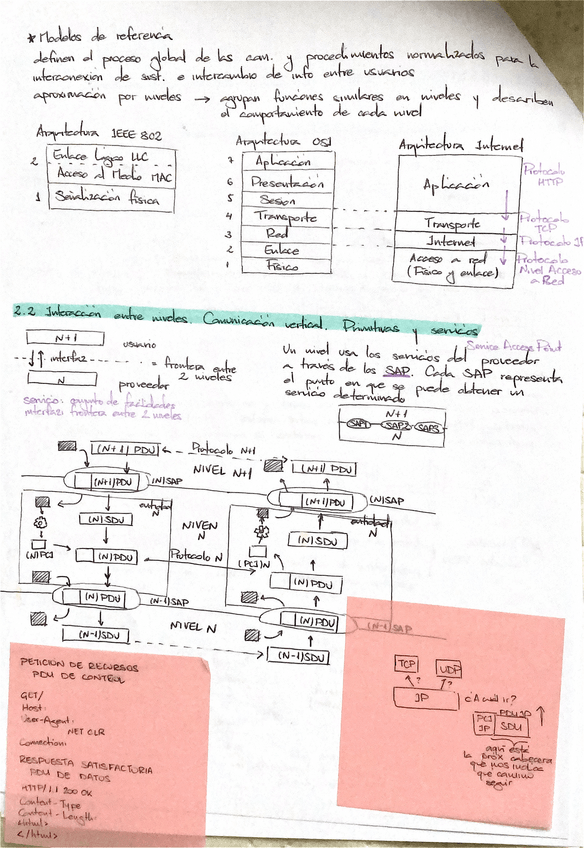 * Modelos de referencia
definen el proceso global de las com. y procedimientos normalizados para la
interconexion de sist. e intercambio de info entre usuarios
aproximación por niveles → agrupan funciones similares en niveles y describen
el comportamiento de cada nivel
Arquitectura IEEE 802
2 Enlace Lógico LLC
Acceso al Medio MAC
1 Señalización física
Arquitectura OSI
7 Aplicación
6 Presentación
5 Sesion
4 Transporte
3 Red
2 Enlace
1 Físico
Arquitectura Internet
Aplicación
Transporte
Internet
Acceso a red
(Físico y enlace)
Protocolo
HTTP
Protocolo
TCP
Protocolo IP
Protocolo
Nivel Acceso
a Red
2.2 Interacción entre niveles. Comunicación vertical. Primitivas y servicios
N+1 usuario
interfaz = frontera entre
2 niveles
N proveedor
servicio: conjunto de facilidades
interfaz: frontera entre 2 niveles
Service Access Point
Un nivel usa los servicios del proveedor
a través de los SAP. Cada SAP representa
el punto en que se puede obtener un
servicio determinado
N+1
SAP1 SAP2 SAP3
N
(N+1) PDU Protocolo N+1 (N+1) PDU
NIVEL N+1
(N+1)PDU (N)SAP (N+1)PDU (N)SAP
entidad N entidad N
(N)SDU NIVEN N (N)SDU
(N)PCI (N)PDU Protocolo N (PCI)N (N)PDU
(N)PDU (N-1)SAP (N)PDU (N-1)SAP
NIVEL N
(N-1)SDU (N-1)SDU
PETICION DE RECURSOS
PDU DE CONTROL
GET/
Host:
User-Agent:
NET CLR
Connection:
RESPUESTA SATISFACTORIA
PDU DE DATOS
HTTP/1.1 200 OK
Content-Type
Content-Length:
<html>
</html>
TCP UDP
? ?
IP
¿A cuál ir?
PDU IP
PCI IP SDU
aquí está
la cabecera
que nos indica
que camino
seguir